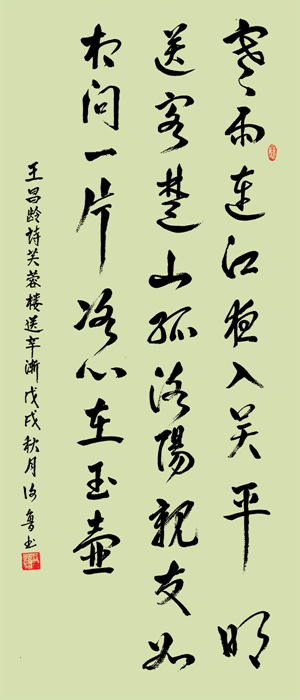 寒雨連江夜入吴平明
送客楚山孤洛陽親友如
相问一片冰心在玉壶
王昌龄詩芙蓉楼送辛漸戊戌秋月鲁书